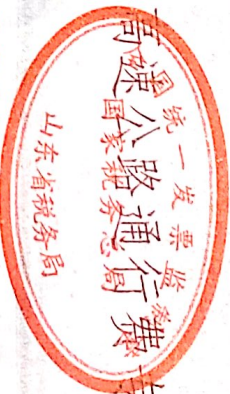 高速公路通行费
全国统一发票监制章
国家税务总局
山东省税务局